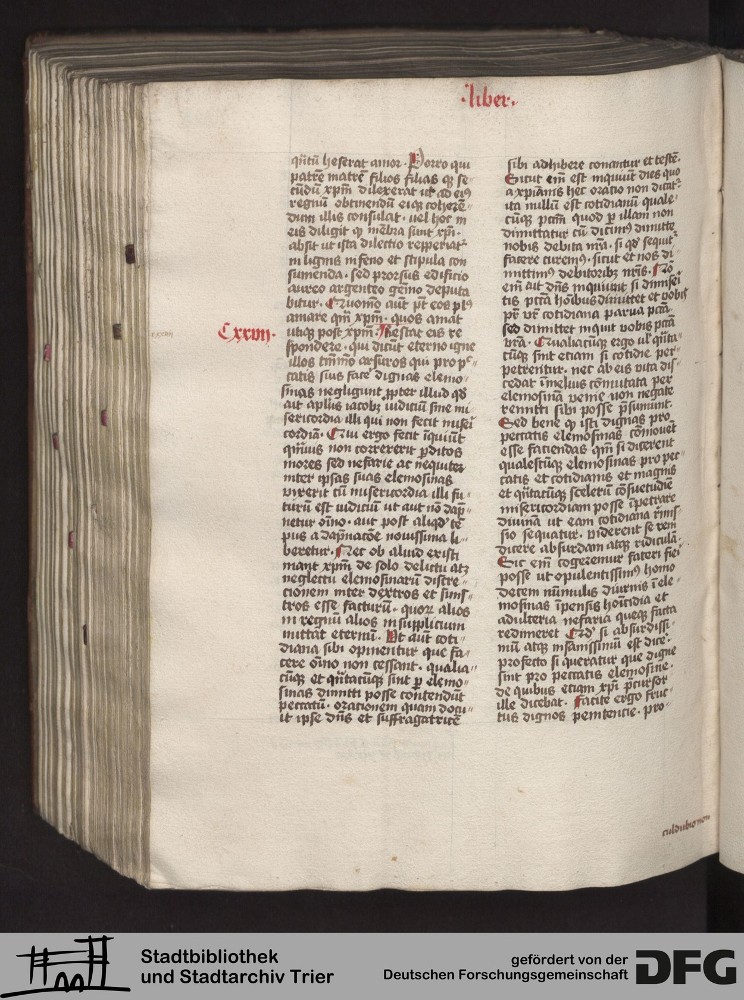 ·liber·
qͣntū heserat amor· Porro qui
patrē matrē filios filias qꝫ se-
cūdū xpm̄ dilexerat ut ad eiꝰ
regnū obtinendū eiqꝫ coherē-
dum illis consulat· uel hoc in
eis diligit qꝫ mēbra sunt xpi·
absit ut ista dilectio repperiat᷑
in lignis in feno et stipula con
sumenda· sed prorsus edificio
aureo argenteo gēīno deputa
bitur· Quomō aūt pt̄ eos plꝰ
amare qm̄ xpm̄· quos amat
utiqꝫ post xpm̄· Restat eis re
Cxxvij·
spondere· qui dicūt eterno igne
illos tm̄mō arsuros qui pro pc̄-
catis suis facē dignas elemo-
sinas negligunt ꝓpter illud qd̄
ait apl̄us iacobꝫ iudiciū sine mi
sericordia illi qui non fecit miseri
cordiā· Qui ergo fecit inquiūt
qͣmuis non correxerit ꝑditos
mores sed nefarie ac nequiter
inter ipsas suas elemosinas
uixerit cū misericordia illi fu-
turū est iudiciū ut aut nō dāp-
netur oīno· aut post aliqd̄ tē
pus a dāpnacōe nouissima li-
beretur· Nec ob aliud existi
mant xpm̄ de solo delictu atqꝫ
neglectu elemosinarū discre-
cionem inter dextros et sinis-
tros esse facturū· quoꝝ alios
in regnū alios in supplicium
mittat eternū· Ut aūt coti-
diana sibi opinentur que fa-
cere oīno non cessant· qualia-
cūqꝫ et qͣntacūqꝫ sint ꝑ elemo-
sinas dimitti posse contendūt
peccatū· orationem quam docu-
it ipse dn̄s et suffragatricē
sibi adhibere conantur et testē·
Sicut em̄ est inquiūt dies quo
a xpianis hec oratio non dicat᷑
ita nullū est cotidianū quale-
cūqꝫ pctm̄ quod ꝑ illam non
dimittatur cū dicimꝰ dimitte
nobis debita nr̄a· si qd̄ sequit᷑
facere curemꝰ· sicut et nos di-
mittimꝰ debitoribꝫ nr̄is·
em̄ ait dn̄s inquiunt si dimiseri
tis pctā hoībus dimittet et vobis
pr̄ vr̄ cotidiana parua pctā
sed dimittet inquit vobis pctā
vr̄a· Qualiacūqꝫ ergo ul̄ qͣnta-
cūqꝫ sint etiam si cotidie per-
petrentur· nec ab eis vita dis-
cedat in melius cōmutata per
elemosinā venie non negate
remitti sibi posse p̄sumunt·
Sed bene qꝫ isti dignas pro
peccatis elemosinas cōmouēt
esse faciendas qm̄ si dicerent
qualescūqꝫ elemosinas pro pec-
catis et cotidianis et magnis
et qͣntacūqꝫ scelerū cōsuetudīe
misericordiam posse īpetrare
diuinā ut eam cotidiana r̄mis
sio sequatur· viderent se rem
dicere absurdam atqꝫ ridiculā·
Sic em̄ cogerentur fateri fieri
posse ut opulentissimꝰ homo
decem numulis diurnis ī ele-
mosinas īpensis homicidia et
adulteria nefaria queqꝫ facta
redimeret· Qd̄ si absurdissi-
mū atqꝫ insanissimū est dicē·
profecto si queratur que digne
sint pro peccatis elemosine·
de quibus etiam xpi p̄cursor
ille dicebat· Facite ergo fruc-
tus dignos penitencie· pro-
cul dubio non
Stadtbibliothek
und Stadtarchiv Trier
gefördert von der
Deutschen Forschungsgemeinschaft
DFG